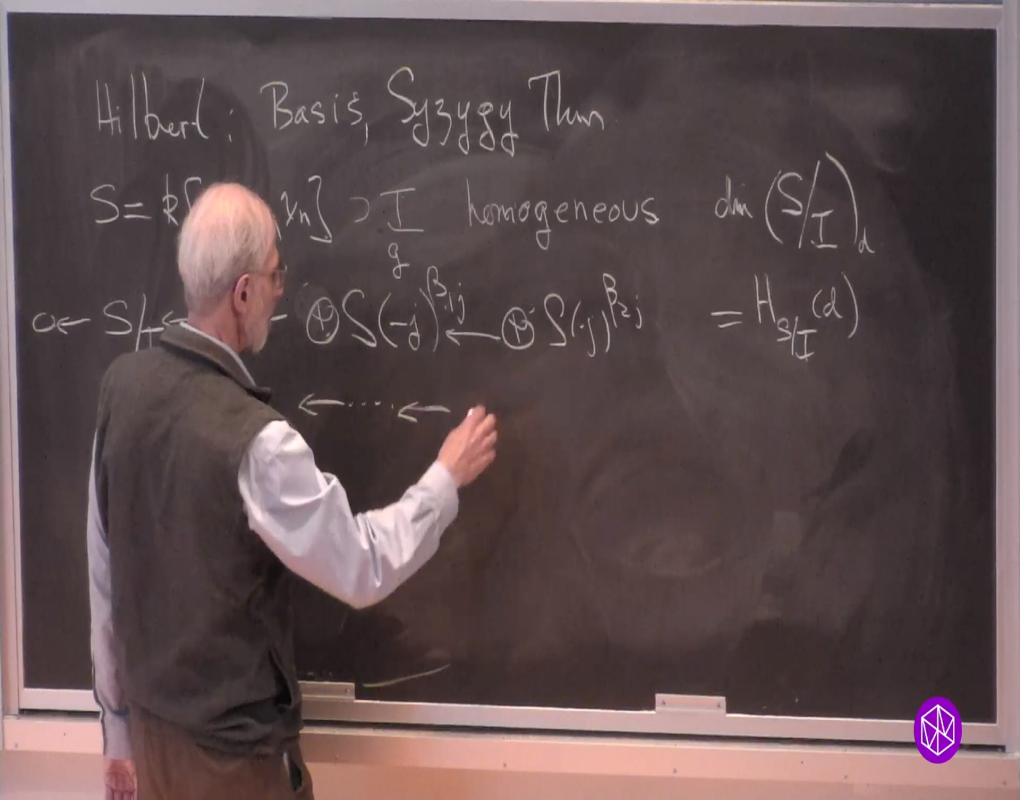 Hilbert: Basis, Syzygy Thm
S = k[ xn] ⊃ I homogeneous dim (S/I)_d
g
0 ← S/I ← ← ⊕ S(-j)^{β_{1,j}} ← ⊕ S(-j)^{β_{2,j}} = H_{S/I}(d)
← .... ←